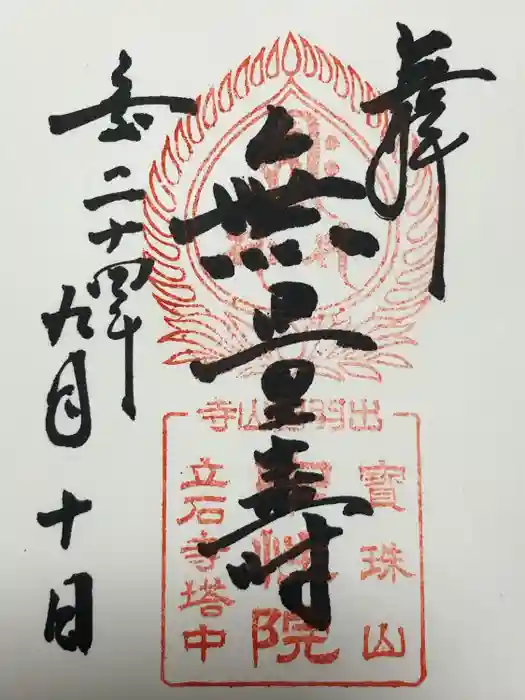 奉拝
無量壽
二十四年
九月十日
出羽 山寺
寶珠山
院
立石寺塔中